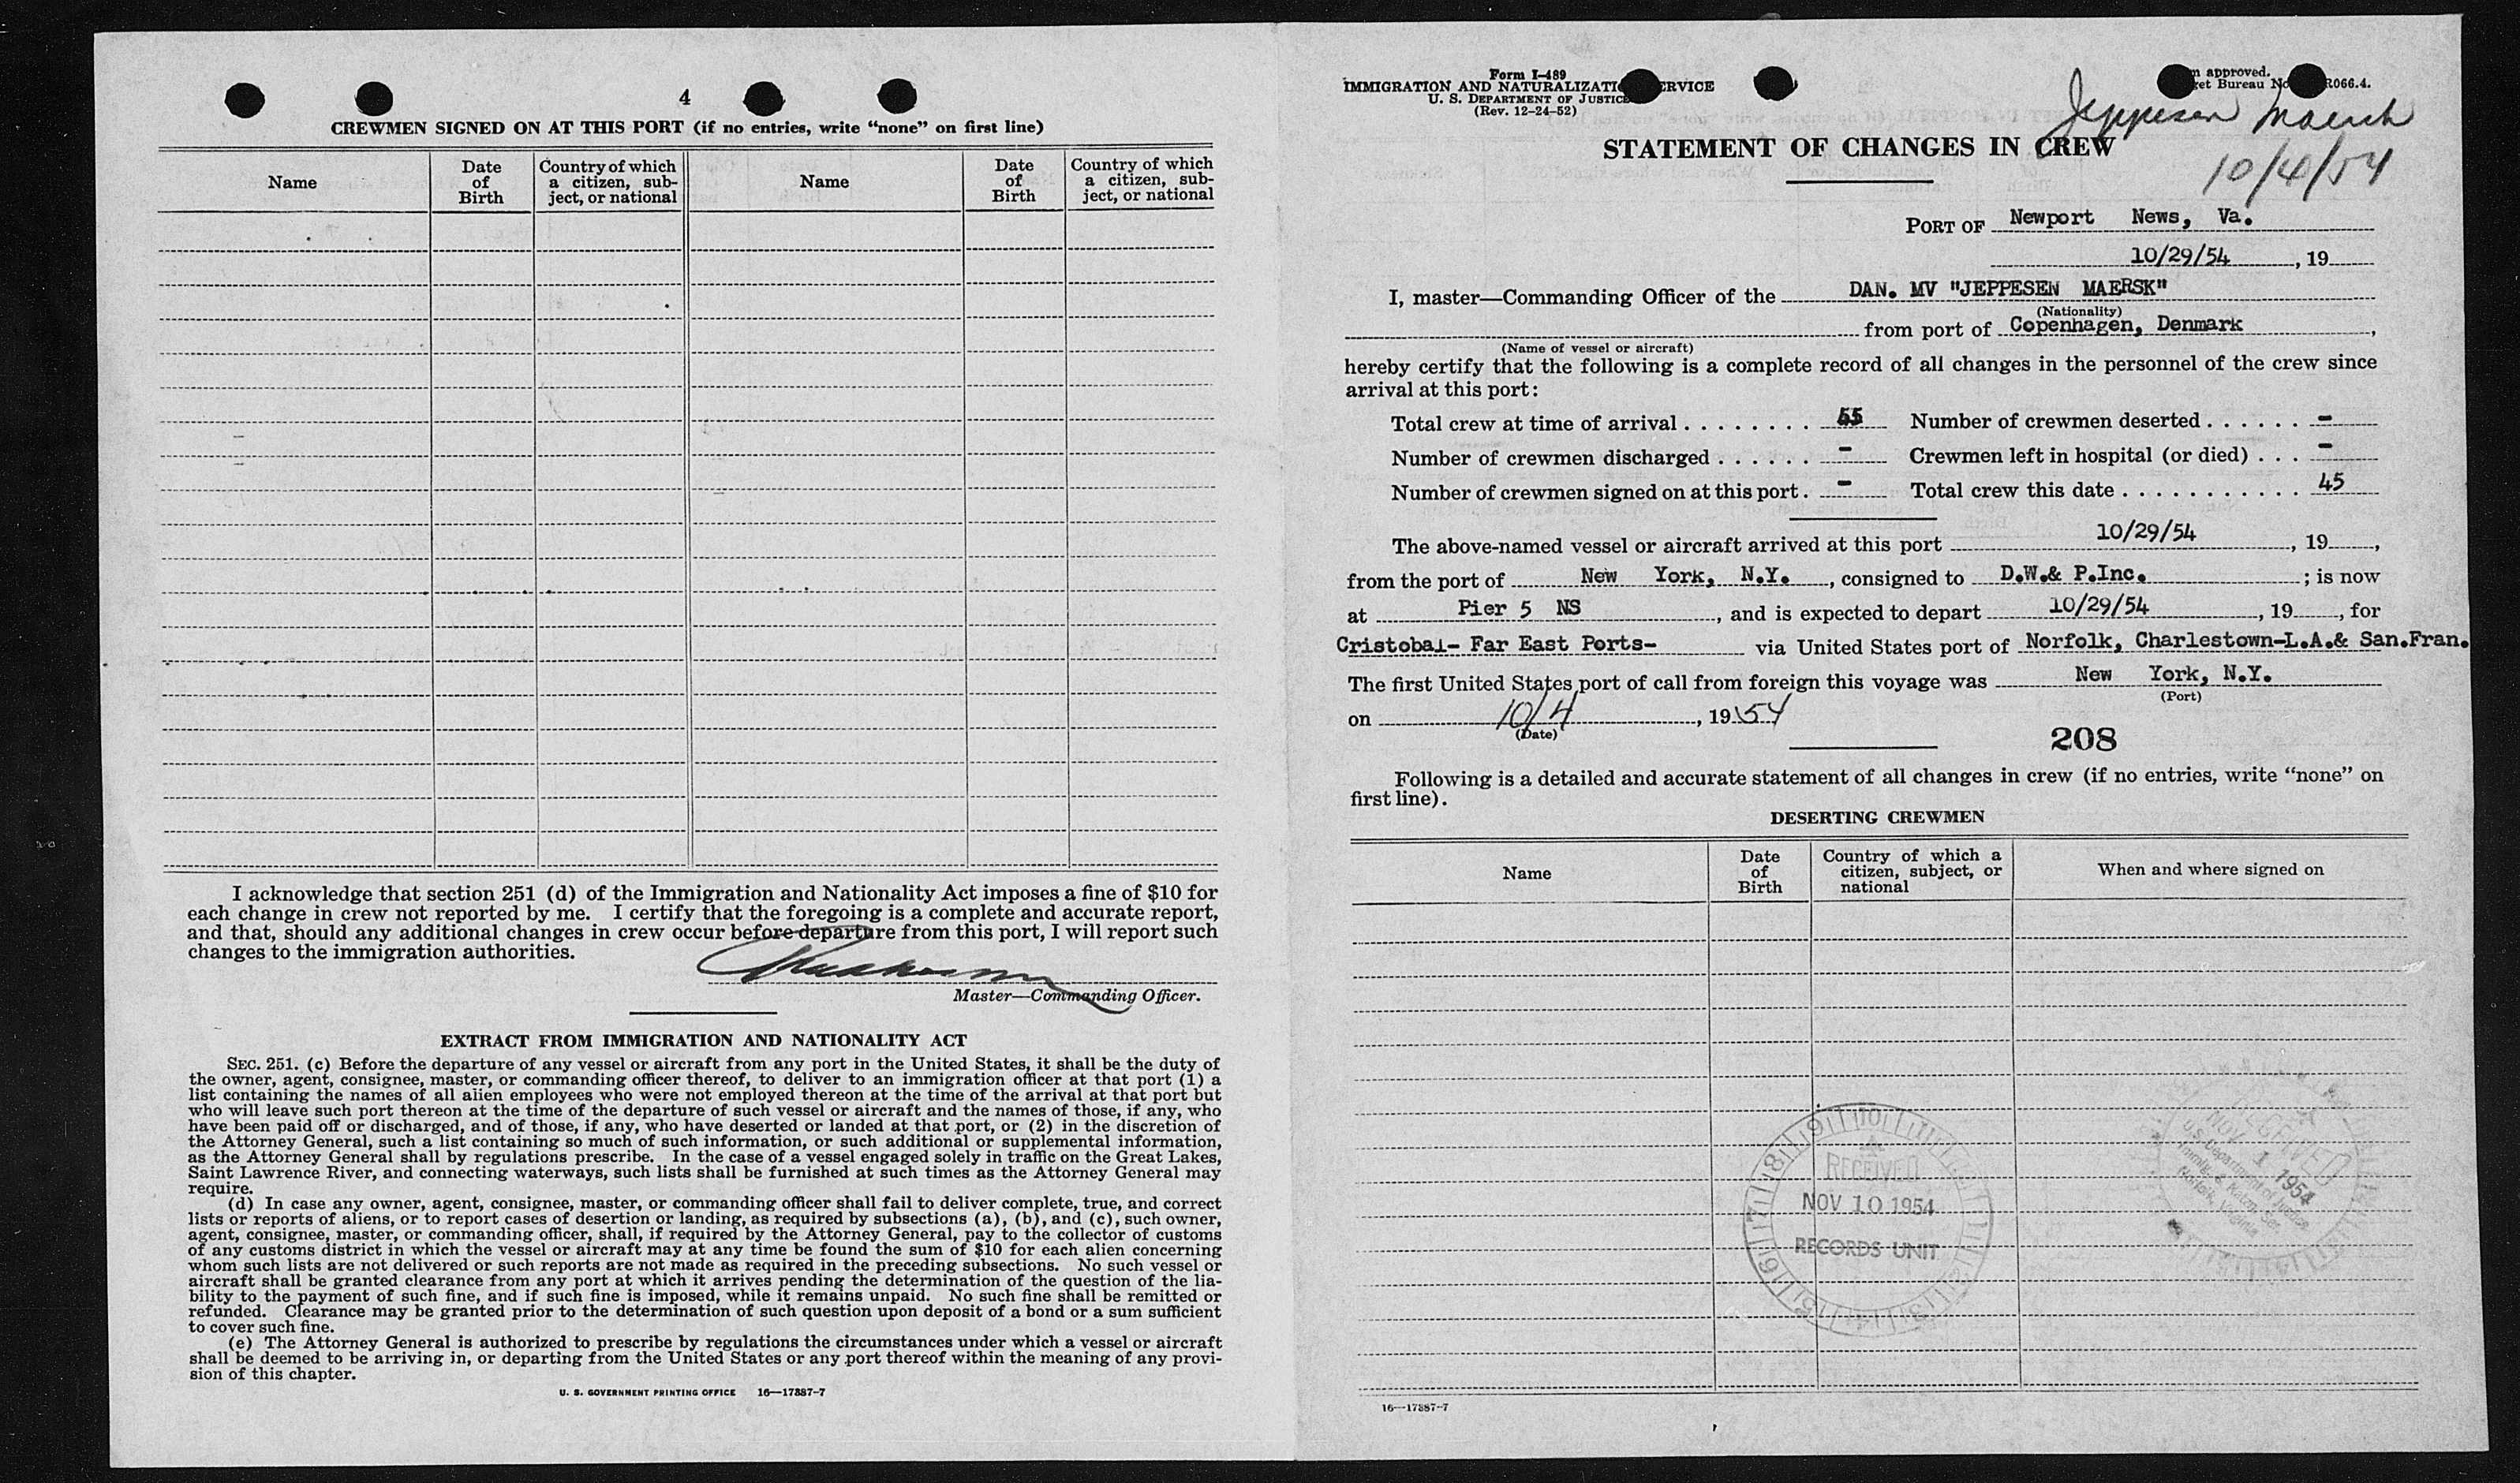 4
CREWMEN SIGNED ON AT THIS PORT (if no entries, write “none” on first line)
Name
Date of Birth
Country of which a citizen, sub-ject, or national
Name
Date of Birth
Country of which a citizen, sub-ject, or national
I acknowledge that section 251 (d) of the Immigration and Nationality Act imposes a fine of $10 for
each change in crew not reported by me. I certify that the foregoing is a complete and accurate report,
and that, should any additional changes in crew occur before departure from this port, I will report such
changes to the immigration authorities.
Master—Commanding Officer.
EXTRACT FROM IMMIGRATION AND NATIONALITY ACT
SEC. 251. (c) Before the departure of any vessel or aircraft from any port in the United States, it shall be the duty of
the owner, agent, consignee, master, or commanding officer thereof, to deliver to an immigration officer at that port (1) a
list containing the names of all alien employees who were not employed thereon at the time of the arrival at that port but
who will leave such port thereon at the time of the departure of such vessel or aircraft and the names of those, if any, who
have been paid off or discharged, and of those, if any, who have deserted or landed at that port, or (2) in the discretion of
the Attorney General, such a list containing so much of such information, or such additional or supplemental information,
as the Attorney General shall by regulations prescribe. In the case of a vessel engaged solely in traffic on the Great Lakes,
Saint Lawrence River, and connecting waterways, such lists shall be furnished at such times as the Attorney General may
require.
(d) In case any owner, agent, consignee, master, or commanding officer shall fail to deliver complete, true, and correct
lists or reports of aliens, or to report cases of desertion or landing, as required by subsections (a), (b), and (c), such owner,
agent, consignee, master, or commanding officer, shall, if required by the Attorney General, pay to the collector of customs
of any customs district in which the vessel or aircraft may at any time be found the sum of $10 for each alien concerning
whom such lists are not delivered or such reports are not made as required in the preceding subsections. No such vessel or
aircraft shall be granted clearance from any port at which it arrives pending the determination of the question of the lia-
bility to the payment of such fine, and if such fine is imposed, while it remains unpaid. No such fine shall be remitted or
refunded. Clearance may be granted prior to the determination of such question upon deposit of a bond or a sum sufficient
to cover such fine.
(e) The Attorney General is authorized to prescribe by regulations the circumstances under which a vessel or aircraft
shall be deemed to be arriving in, or departing from the United States or any port thereof within the meaning of any provi-
sion of this chapter.
U. S. GOVERNMENT PRINTING OFFICE 16—17387-7
Form I-489
IMMIGRATION AND NATURALIZATI ERVICE
U. S. DEPARTMENT OF JUSTICE
(Rev. 12-24-52)
approved.
et Bureau No R066.4.
Jeppesen Maersk
10/4/54
STATEMENT OF CHANGES IN CREW
PORT OF Newport News, Va.
10/29/54, 19
I, master—Commanding Officer of the DAN. MV "JEPPESEN MAERSK"
(Nationality)
from port of Copenhagen, Denmark,
(Name of vessel or aircraft)
hereby certify that the following is a complete record of all changes in the personnel of the crew since
arrival at this port:
Total crew at time of arrival . . . . . . . . Number of crewmen deserted . . . . . . -
Number of crewmen discharged . . . . . . - Crewmen left in hospital (or died) . . . -
Number of crewmen signed on at this port . - Total crew this date . . . . . . . . . . . 45
The above-named vessel or aircraft arrived at this port 10/29/54, 19,
from the port of New York, N.Y., consigned to D.W.& P.Inc. ; is now
at Pier 5 NS, and is expected to depart 10/29/54, 19, for
Cristobal- Far East Ports- via United States port of Norfolk, Charlestown-L.A.& San.Fran.
The first United States port of call from foreign this voyage was New York, N.Y.
(Port)
on 10/4, 1954
(Date)
208
Following is a detailed and accurate statement of all changes in crew (if no entries, write “none” on
first line).
DESERTING CREWMEN
Name
Date of Birth
Country of which a citizen, subject, or national
When and where signed on
RECEIVED
NOV 10 1954
RECORDS UNIT
RECEIVED
NOV 1 1954
U.S. Department of Justice
Immig. & Natzn. Ser.
Norfolk, Virginia
16—17387-7